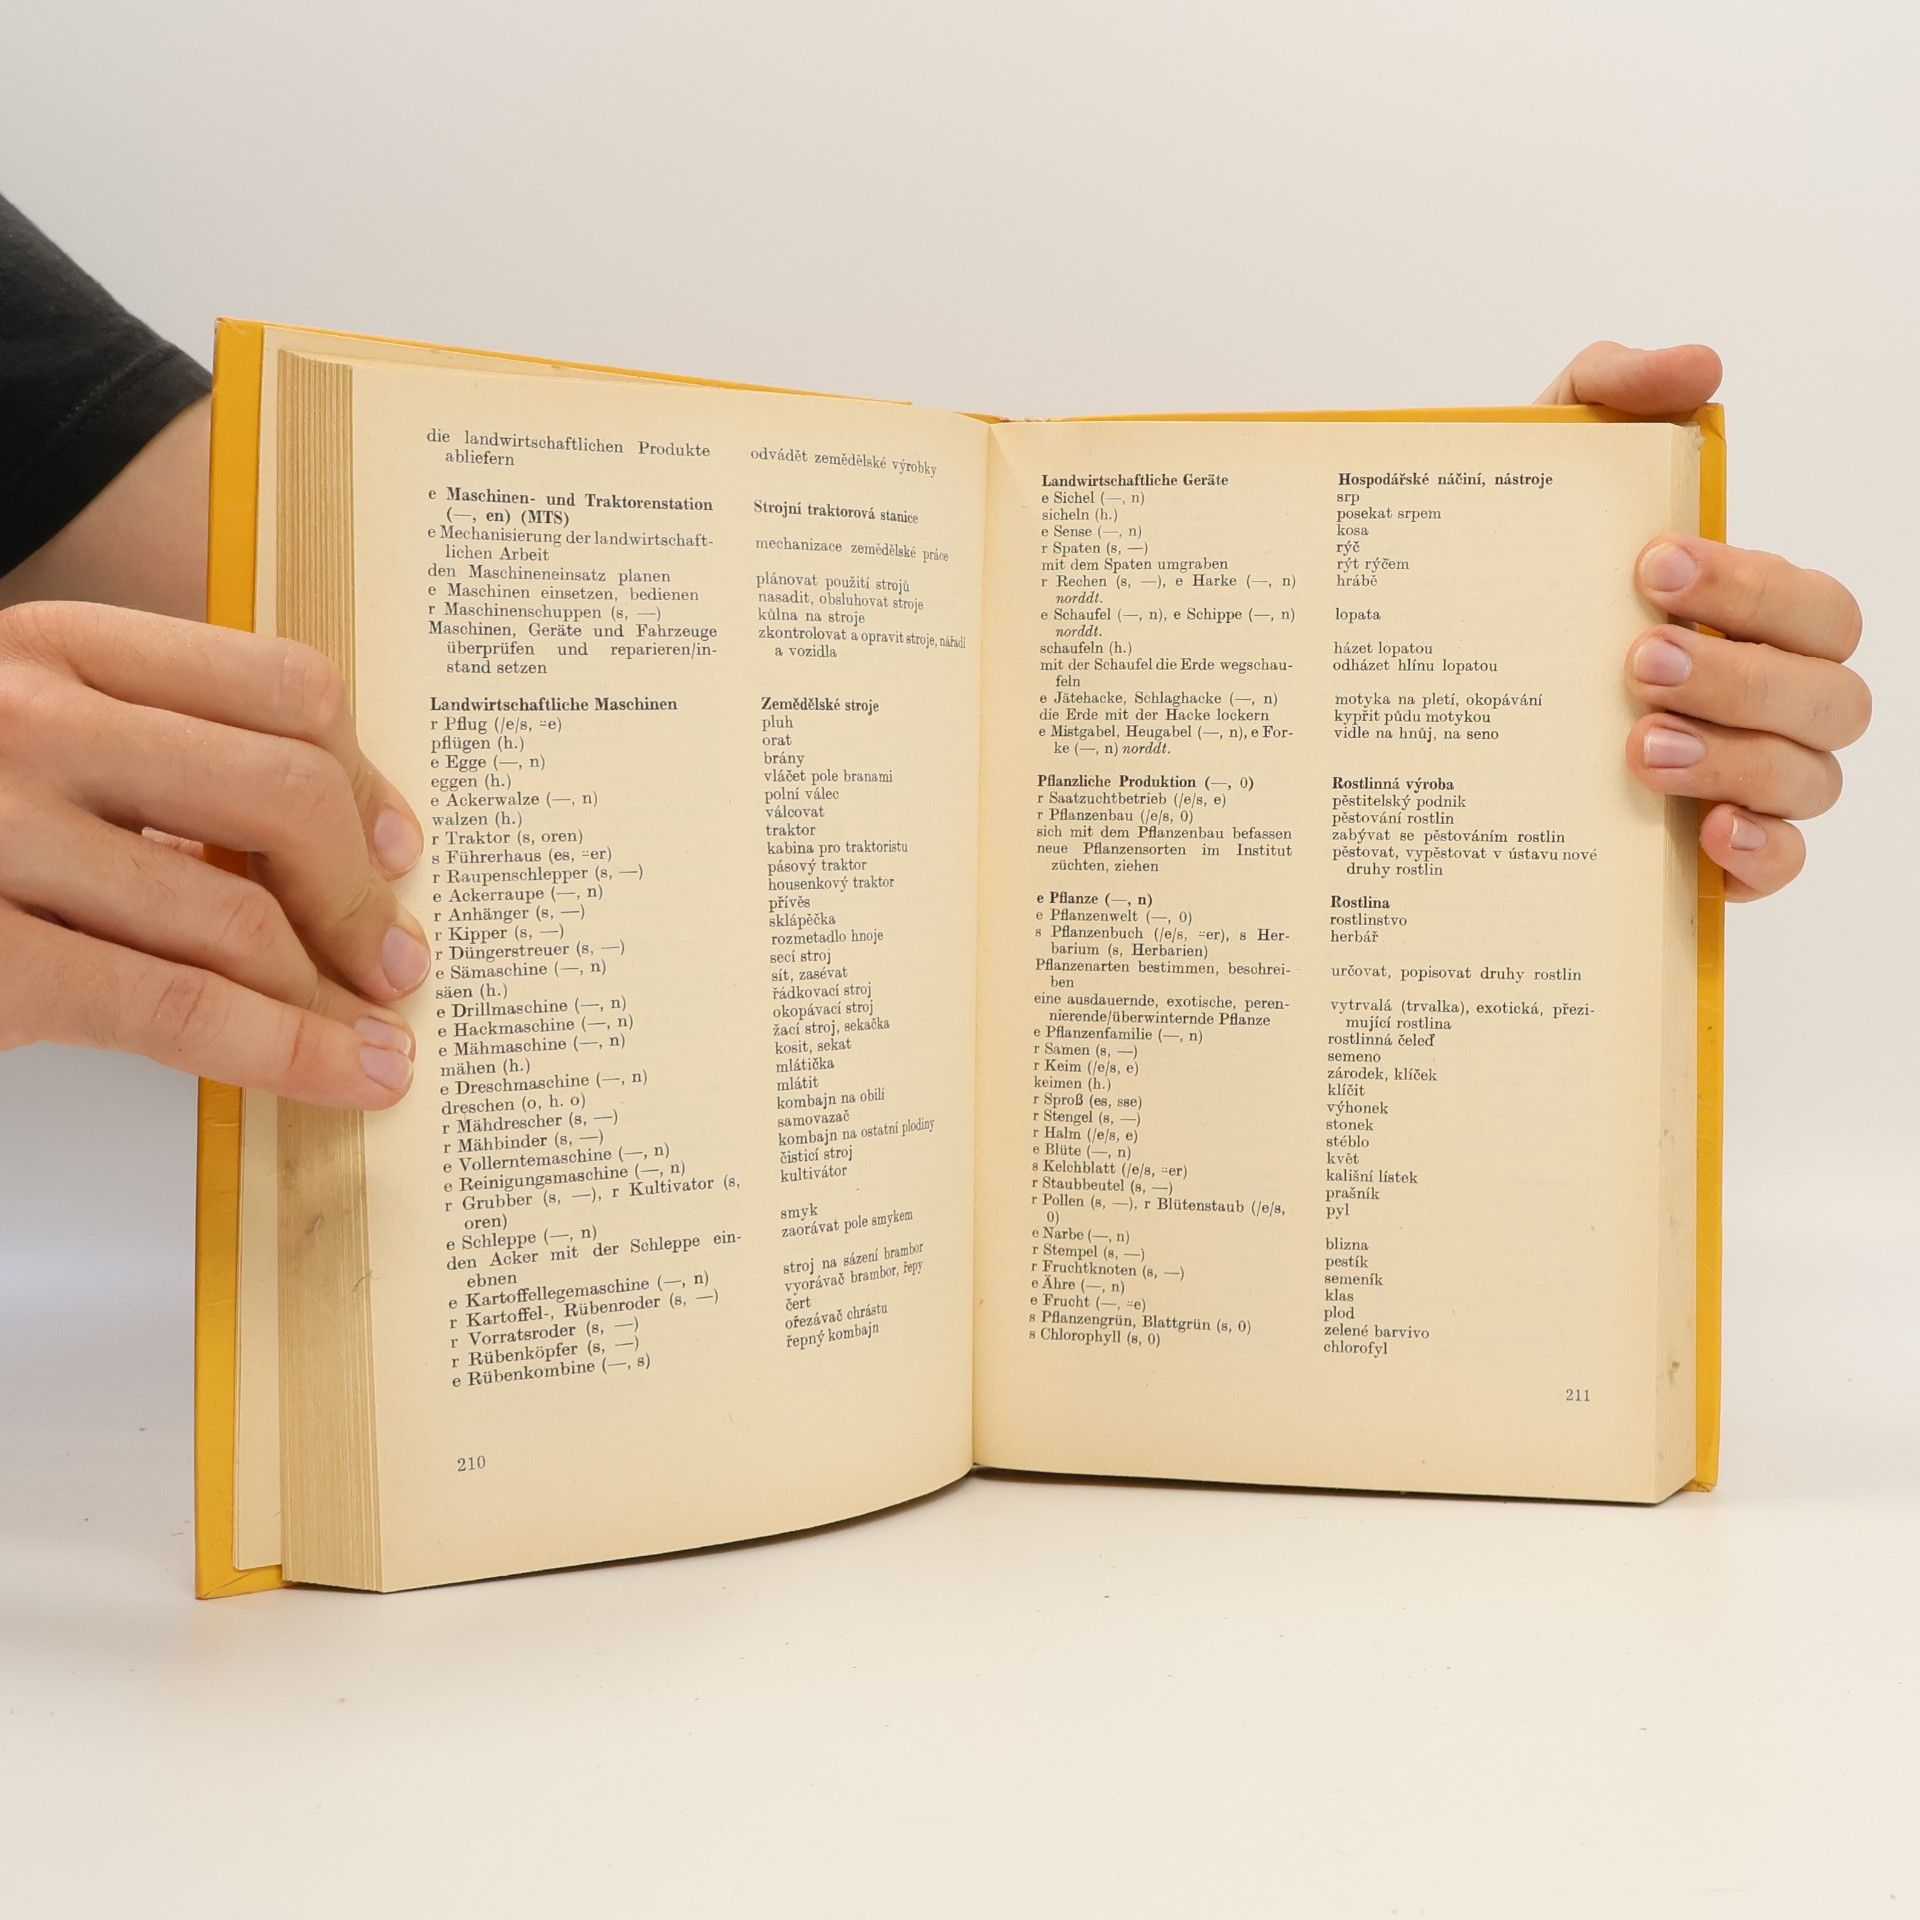 die landwirtschaftlichen Produkte
abliefern
e Maschinen- und Traktorenstation
(—, en) (MTS)
e Mechanisierung der landwirtschaft-
lichen Arbeit
den Maschineneinsatz planen
e Maschinen einsetzen, bedienen
r Maschinenschuppen (s, —)
Maschinen, Geräte und Fahrzeuge
überprüfen und reparieren/in-
stand setzen
Landwirtschaftliche Maschinen
r Pflug (/e/s, ⸚e)
pflügen (h.)
e Egge (—, n)
eggen (h.)
e Ackerwalze (—, n)
walzen (h.)
r Traktor (s, oren)
s Führerhaus (es, ⸚er)
r Raupenschlepper (s, —)
e Ackerraupe (—, n)
r Anhänger (s, —)
r Kipper (s, —)
r Düngerstreuer (s, —)
e Sämaschine (—, n)
säen (h.)
e Drillmaschine (—, n)
e Hackmaschine (—, n)
e Mähmaschine (—, n)
mähen (h.)
e Dreschmaschine (—, n)
dreschen (o, h. o)
r Mähdrescher (s, —)
r Mähbinder (s, —)
e Vollerntemaschine (—, n)
e Reinigungsmaschine (—, n)
r Grubber (s, —), r Kultivator (s,
oren)
e Schleppe (—, n)
den Acker mit der Schleppe ein-
ebnen
e Kartoffellegemaschine (—, n)
r Kartoffel-, Rübenroder (s, —)
r Vorratsroder (s, —)
r Rübenköpfer (s, —)
e Rübenkombine (—, s)
odvádět zemědělské výrobky
Strojní traktorová stanice
mechanizace zemědělské práce
plánovat použití strojů
nasadit, obsluhovat stroje
kůlna na stroje
zkontrolovat a opravit stroje, nářadí
a vozidla
Zemědělské stroje
pluh
orat
brány
vláčet pole branami
polní válec
válcovat
traktor
kabina pro traktoristu
pásový traktor
housenkový traktor
přívěs
sklápěčka
rozmetadlo hnoje
secí stroj
sít, zasévat
řádkovací stroj
okopávací stroj
žací stroj, sekačka
kosit, sekat
mlátička
mlátit
kombajn na obilí
samovazač
kombajn na ostatní plodiny
čisticí stroj
kultivátor
smyk
zaorávat pole smykem
stroj na sázení brambor
vyorávač brambor, řepy
čert
ořezávač chrástu
řepný kombajn
210
Landwirtschaftliche Geräte
e Sichel (—, n)
sicheln (h.)
e Sense (—, n)
r Spaten (s, —)
mit dem Spaten umgraben
r Rechen (s, —), e Harke (—, n)
norddt.
e Schaufel (—, n), e Schippe (—, n)
norddt.
schaufeln (h.)
mit der Schaufel die Erde wegschau-
feln
e Jätehacke, Schlaghacke (—, n)
die Erde mit der Hacke lockern
e Mistgabel, Heugabel (—, n), e For-
ke (—, n) norddt.
Pflanzliche Produktion (—, 0)
r Saatzuchtbetrieb (/e/s, e)
r Pflanzenbau (/e/s, 0)
sich mit dem Pflanzenbau befassen
neue Pflanzensorten im Institut
züchten, ziehen
e Pflanze (—, n)
e Pflanzenwelt (—, 0)
s Pflanzenbuch (/e/s, ⸚er), s Her-
barium (s, Herbarien)
Pflanzenarten bestimmen, beschrei-
ben
eine ausdauernde, exotische, peren-
nierende/überwinternde Pflanze
e Pflanzenfamilie (—, n)
r Samen (s, —)
r Keim (/e/s, e)
keimen (h.)
r Sproß (es, sse)
r Stengel (s, —)
r Halm (/e/s, e)
e Blüte (—, n)
s Kelchblatt (/e/s, ⸚er)
r Staubbeutel (s, —)
r Pollen (s, —), r Blütenstaub (/e/s,
0)
e Narbe (—, n)
r Stempel (s, —)
r Fruchtknoten (s, —)
e Ähre (—, n)
e Frucht (—, ⸚e)
s Pflanzengrün, Blattgrün (s, 0)
s Chlorophyll (s, 0)
Hospodářské náčiní, nástroje
srp
posekat srpem
kosa
rýč
rýt rýčem
hrábě
lopata
házet lopatou
odházet hlínu lopatou
motyka na pletí, okopávání
kypřit půdu motykou
vidle na hnůj, na seno
Rostlinná výroba
pěstitelský podnik
pěstování rostlin
zabývat se pěstováním rostlin
pěstovat, vypěstovat v ústavu nové
druhy rostlin
Rostlina
rostlinstvo
herbář
určovat, popisovat druhy rostlin
vytrvalá (trvalka), exotická, přezi-
mující rostlina
rostlinná čeleď
semeno
zárodek, klíček
klíčit
výhonek
stonek
stéblo
květ
kališní lístek
prašník
pyl
blizna
pestík
semeník
klas
plod
zelené barvivo
chlorofyl
211